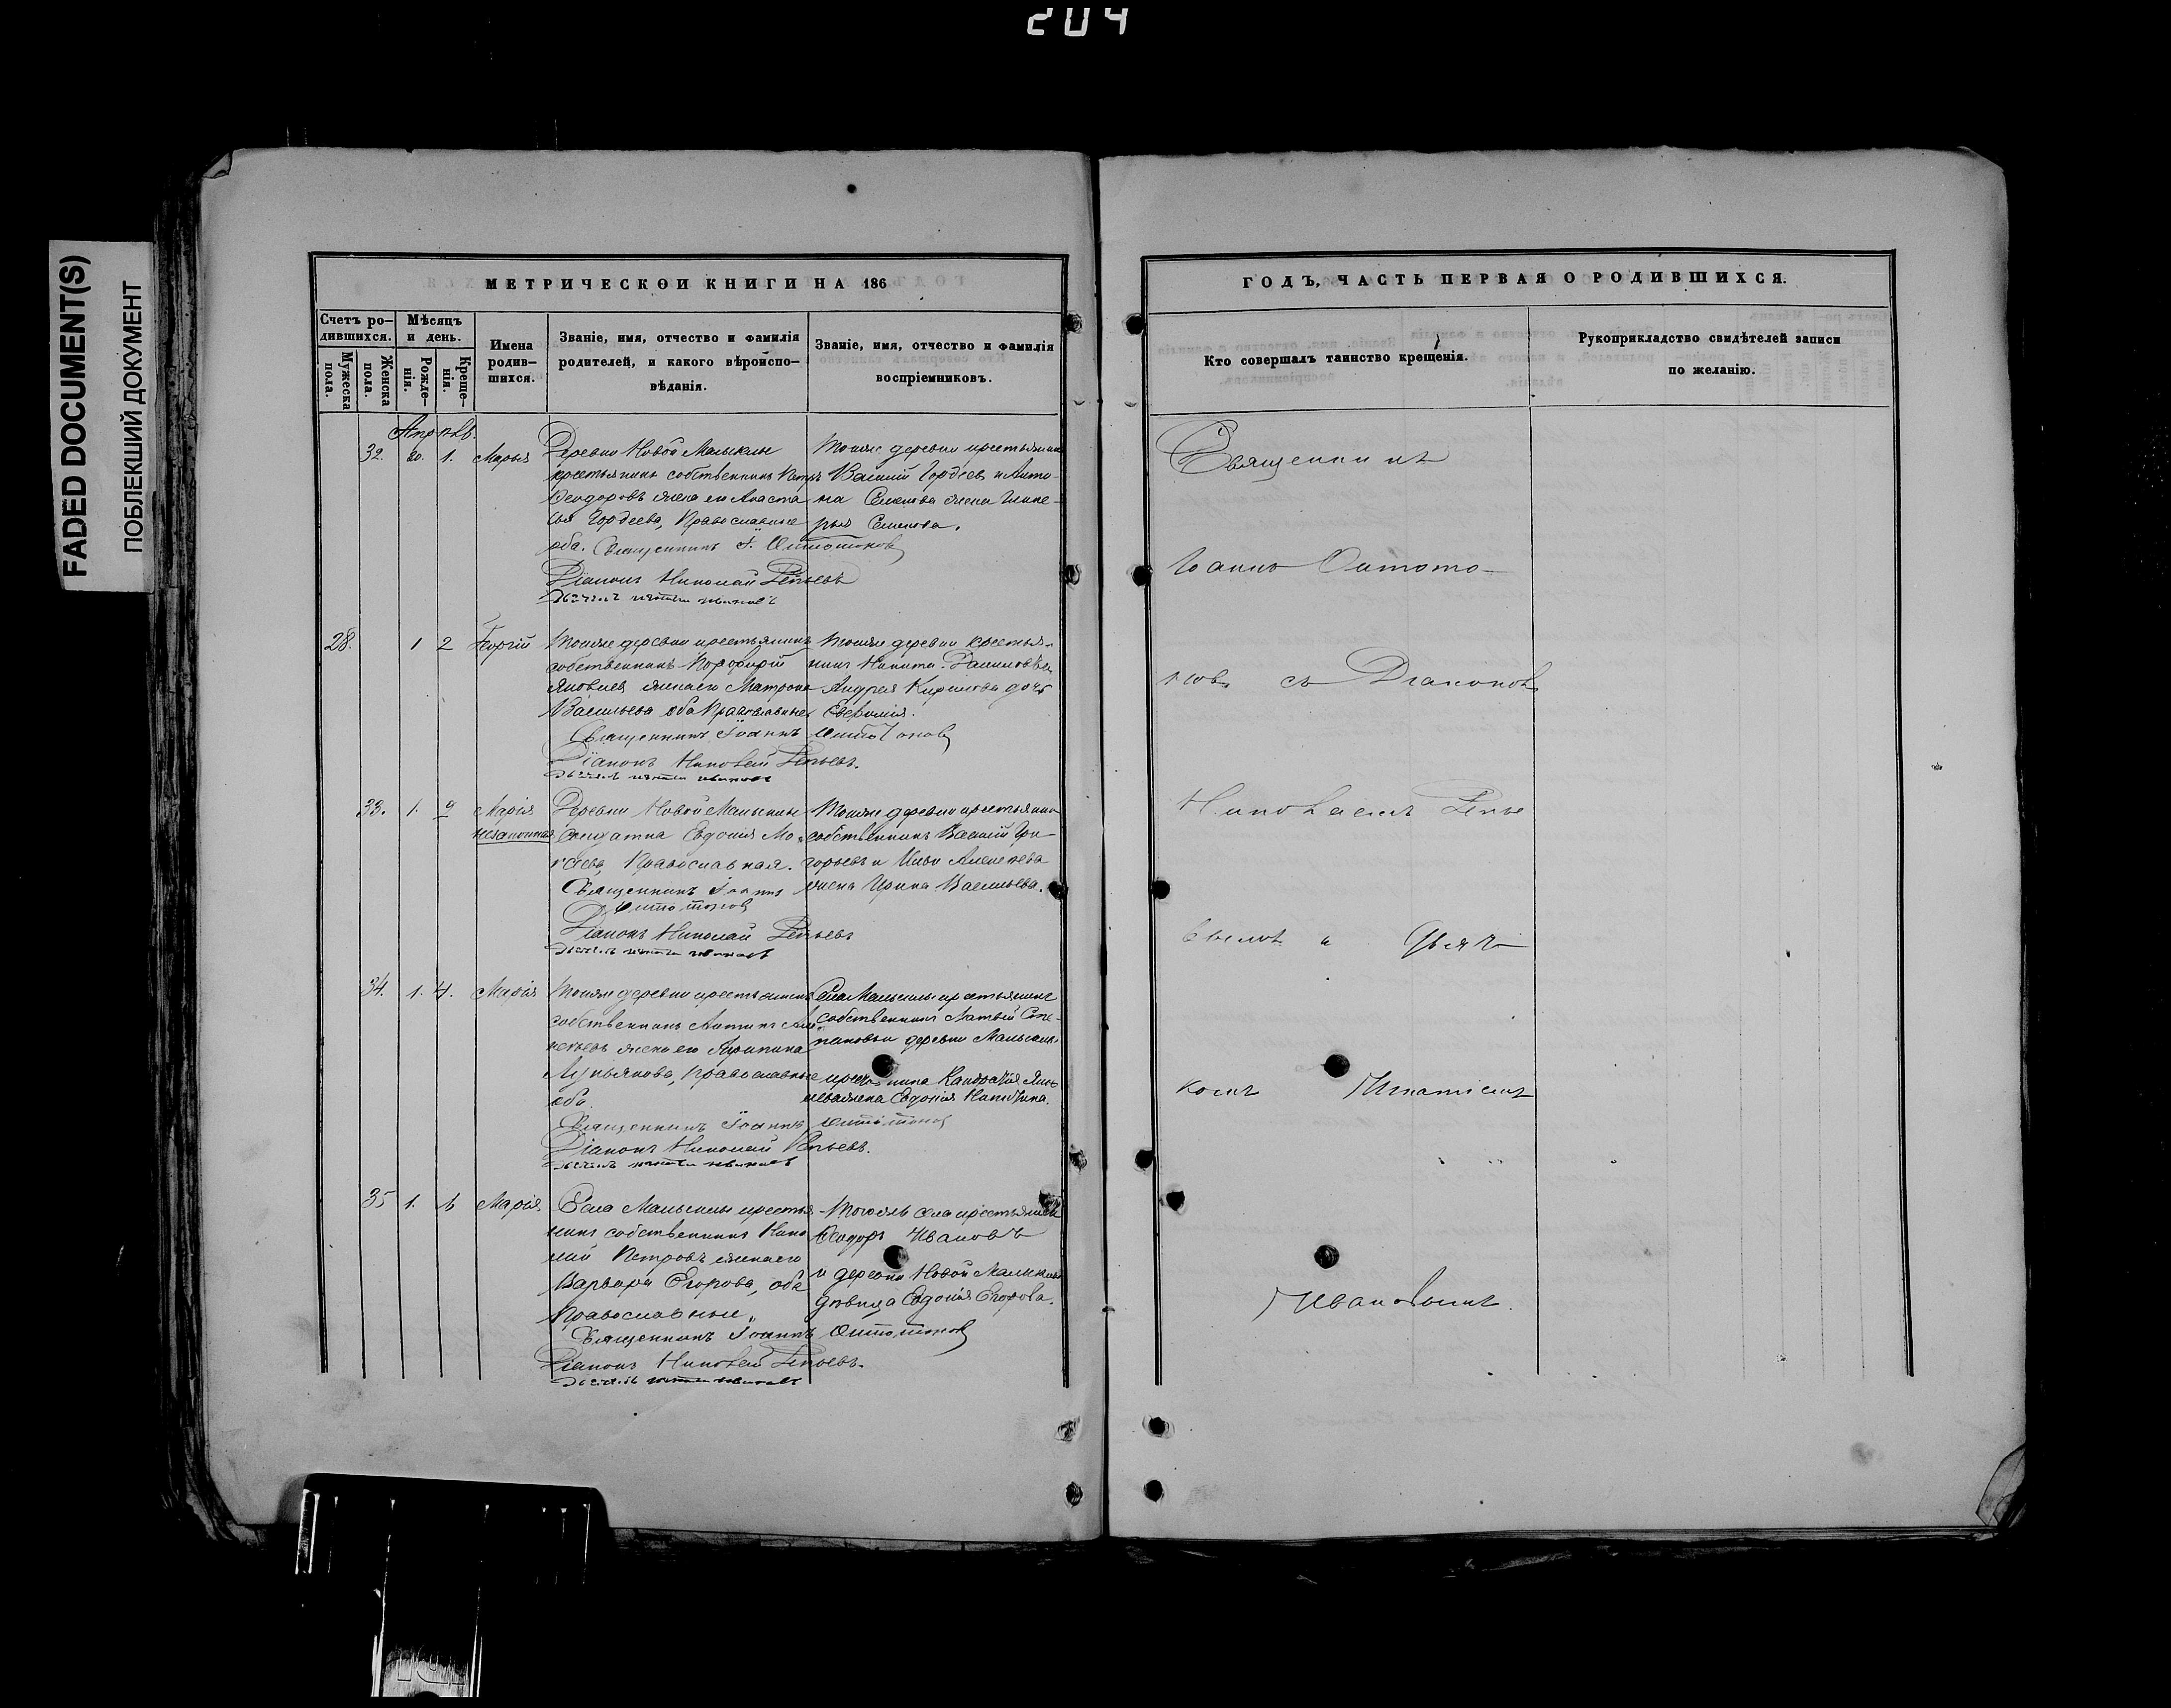 204
FADED DOCUMENT(S)
ПОБЛЕКШИЙ ДОКУМЕНТ
МЕТРИЧЕСКОЙ КНИГИ НА 186
Счетъ ро-
дившихся.
Мужеска
пола.
Женска
пола.
Мѣсяцъ
и день.
Рожде-
нія.
Креще-
нія.
Имена
родив-
шихся.
Званіе, имя, отчество и фамилія
родителей, и какого вѣроиспо-
вѣданія.
Званіе, имя, отчество и фамилія
воспріемниковъ.
Апрѣль.
32. 1. Марья
Деревни Новой Малыклы
крестьянинъ собственникъ Петръ
Ѳеодоровъ жена его Анаста
сья Гордеева, Православные
оба. Священникъ І.
Діаконъ Николай Репьевъ
Тояже деревни крестьянинъ
Василий Гордѣевъ
Семенова жена
Семенова.
28. 1 2 Георгій
Тояже деревни крестьянинъ
собственникъ Порфирій
Яковлевъ жена его Матрона
Васильева оба Православные
Священникъ Іоаннъ
Діаконъ Николай Репьевъ.
Тояже деревни крестья-
нинъ Никита
Андрея Кирилова дочь
Евфимія.
33. 1. 2 Марія
незаконная
Деревни Новой Малыклы
Солдатка Евдокія
Православная.
Священникъ Іоаннъ
Діаконъ Николай Репьевъ
Тояже деревни крестьянинъ
собственникъ Василій Гри-
горьевъ и Ильи Алексеева
жена Ирина Васильева.
34. 1. 4. Марія
Тояже деревни крестьянинъ
собственникъ Антипъ Але-
ксеевъ жена его Агрипина
Лукьянова, Православные
оба.
Священникъ Іоаннъ
Діаконъ Николай Репьевъ.
Села Малыклы крестьянинъ
собственникъ Матвей Сте-
пановъ и деревни Малыклы
Евдокія Никитина.
35 1. 6 Марія
Села Малыклы крестья-
нинъ собственникъ Нико
лай Петровъ жена его
Варвара Егорова, оба
Православные.
Священникъ Іоаннъ
Діаконъ Николай Репьевъ.
Тогожъ села крестьянинъ
Ѳеодоръ Ивановъ
и деревни Новой Малыклы
дѣвица Евдокія Егорова.
ГОДЪ, ЧАСТЬ ПЕРВАЯ О РОДИВШИХСЯ.
Кто совершалъ таинство крещенія.
Рукоприкладство свидѣтелей записи
по желанію.
Священникъ
Іоаннъ
съ Діакономъ
Николаемъ Репье
вымъ и Дьяч-
комъ Игнатіемъ
Ивановымъ.